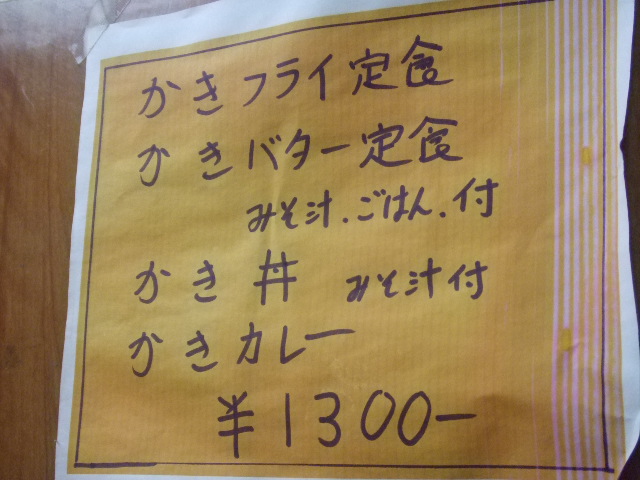 かきフライ定食
かきバター定食
みそ汁.ごはん.付
かき丼 みそ汁付
かきカレー
¥1300-